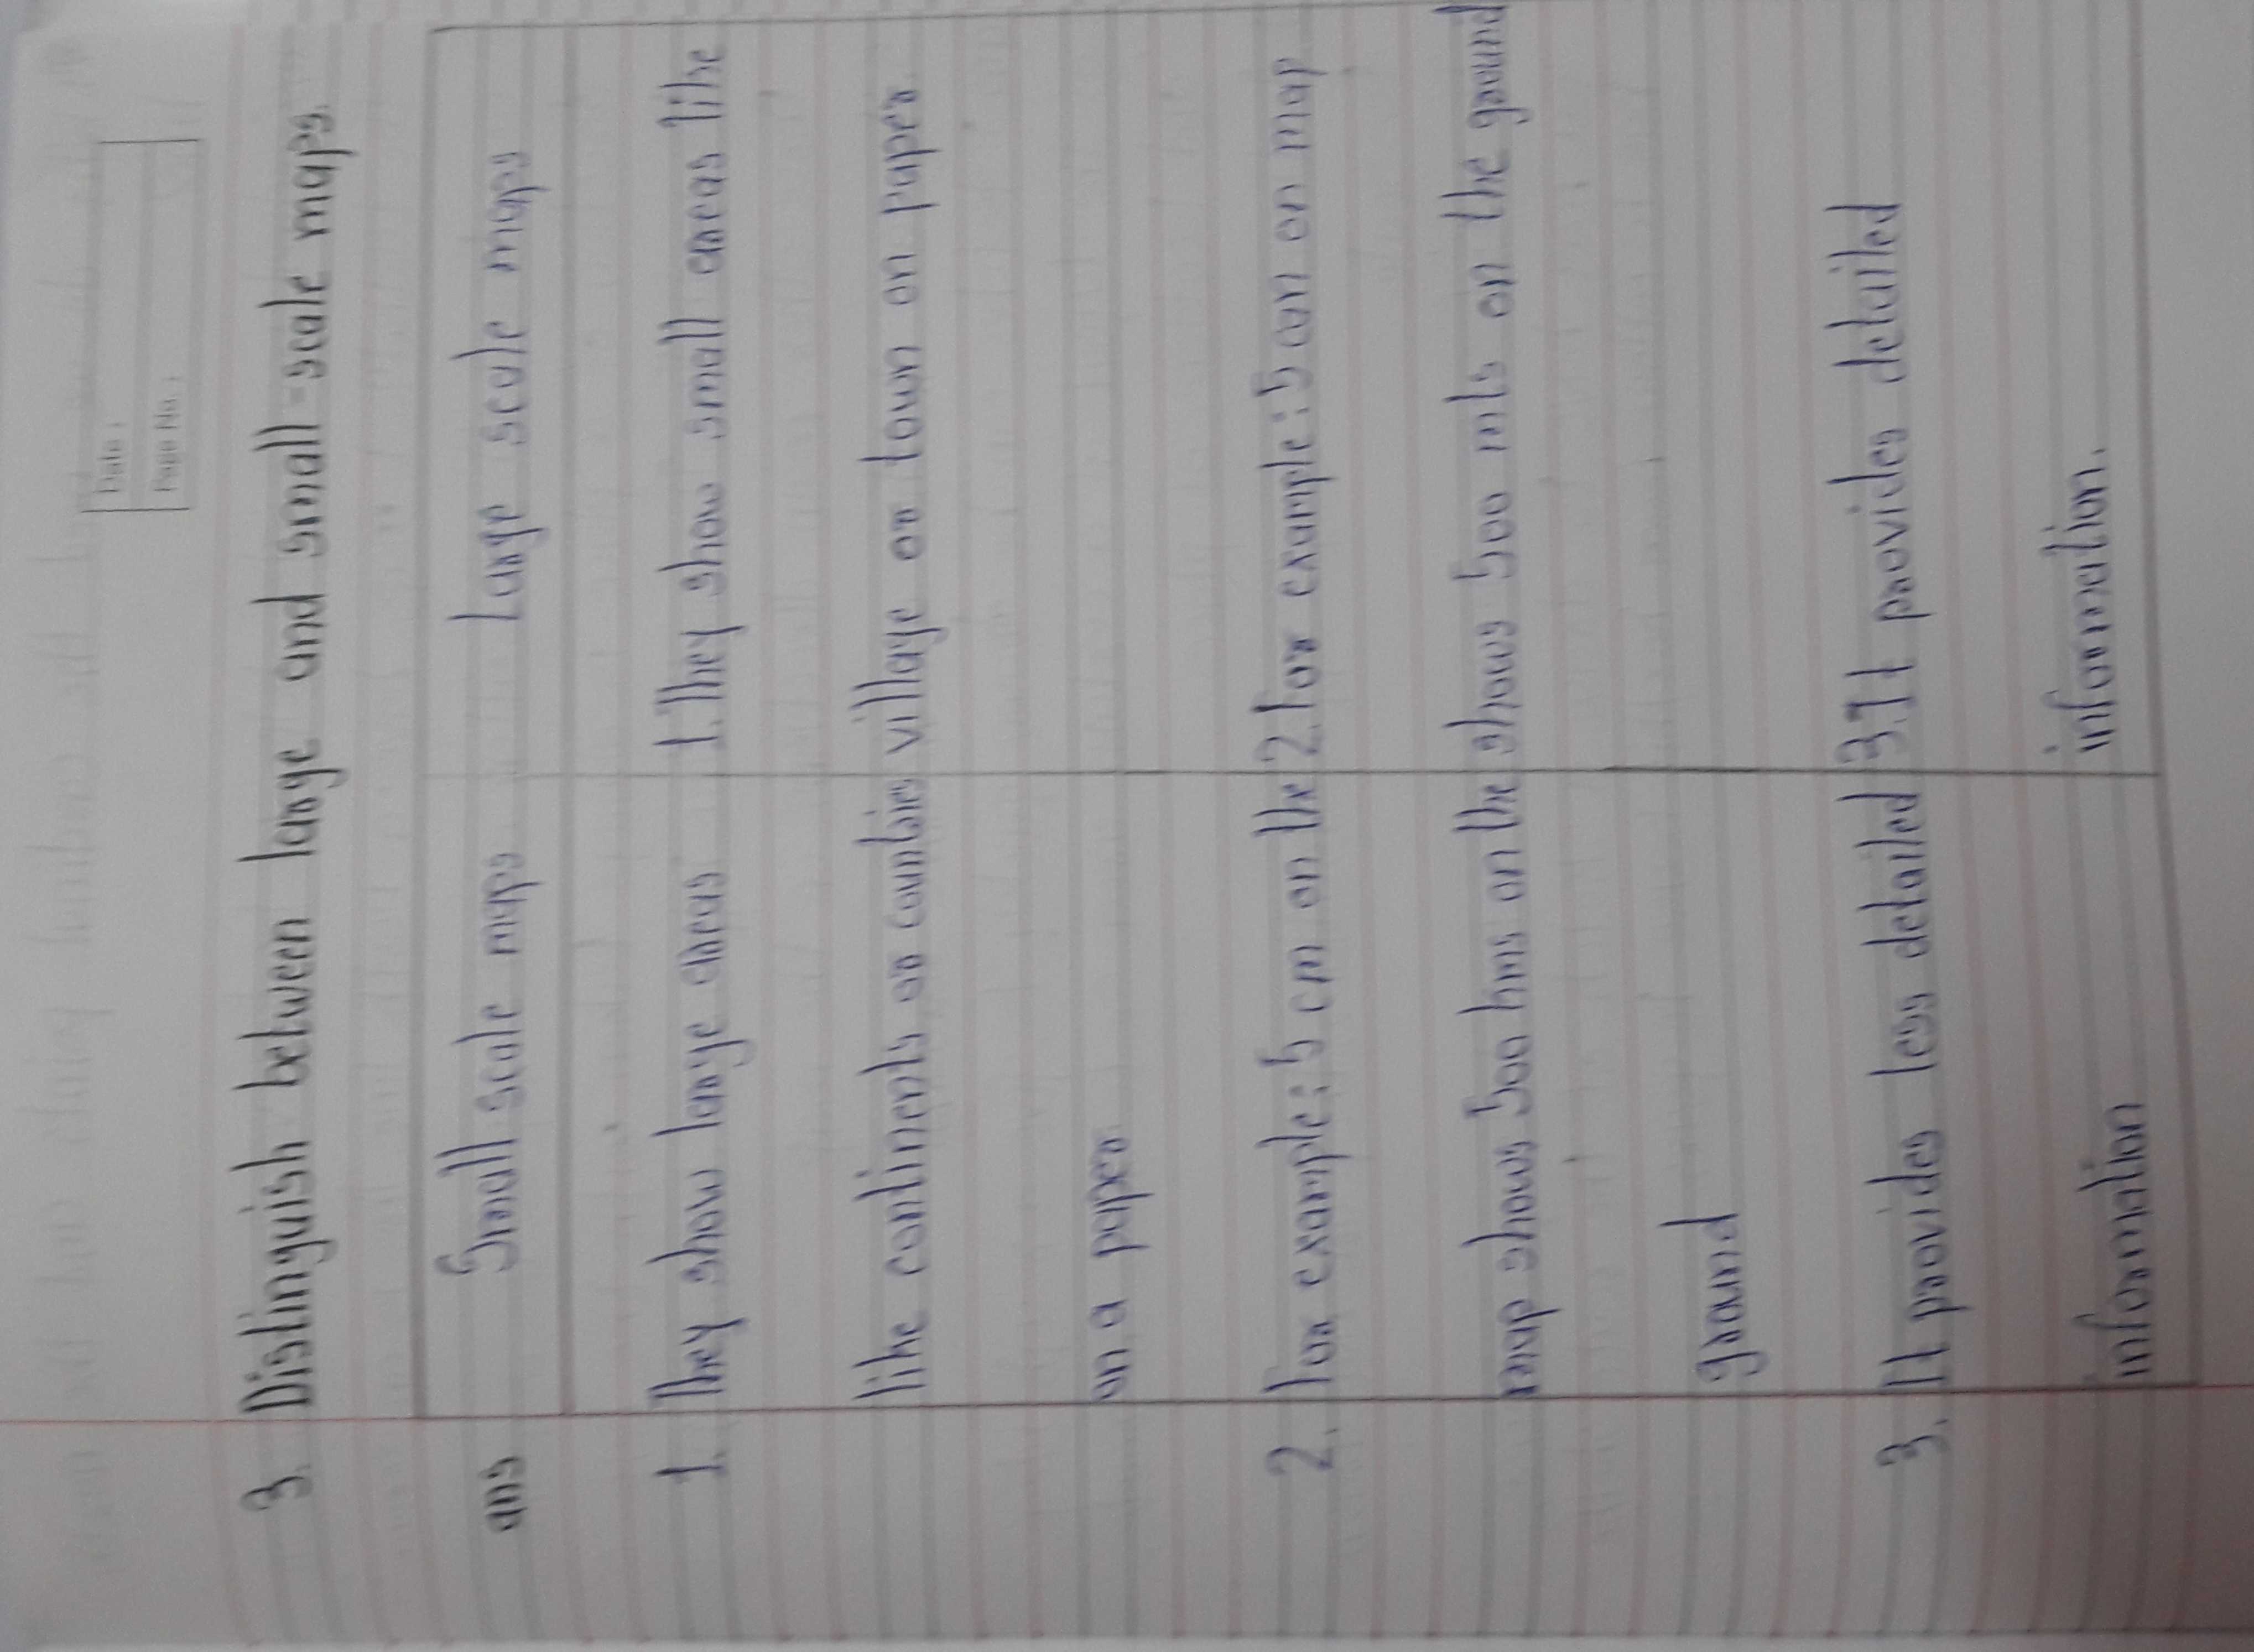 Date :
Page No. :
3. Distinguish between large and small-scale maps.
ans Small scale maps Large scale maps
1. They show large areas 1. They show small areas like
like continents or countries village or town on paper.
on a paper.
2. For example: 5 cm on the 2. For example: 5 cm on map
map shows 500 kms on the shows 500 mts on the ground
ground
3. It provides less detailed 3. It provides detailed
information information.